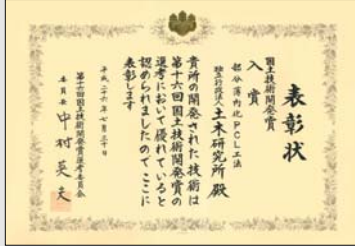 表彰状
国土技術開発賞
入賞
部分薄肉化PCL工法
独立行政法人土木研究所 殿
貴所の開発された技術は
第十六回国土技術開発賞の
選考において優れていると
認められましたのでここに
表彰します
平成二十六年七月三十日
第十六回国土技術開発賞選考委員会
委員長 中村英夫